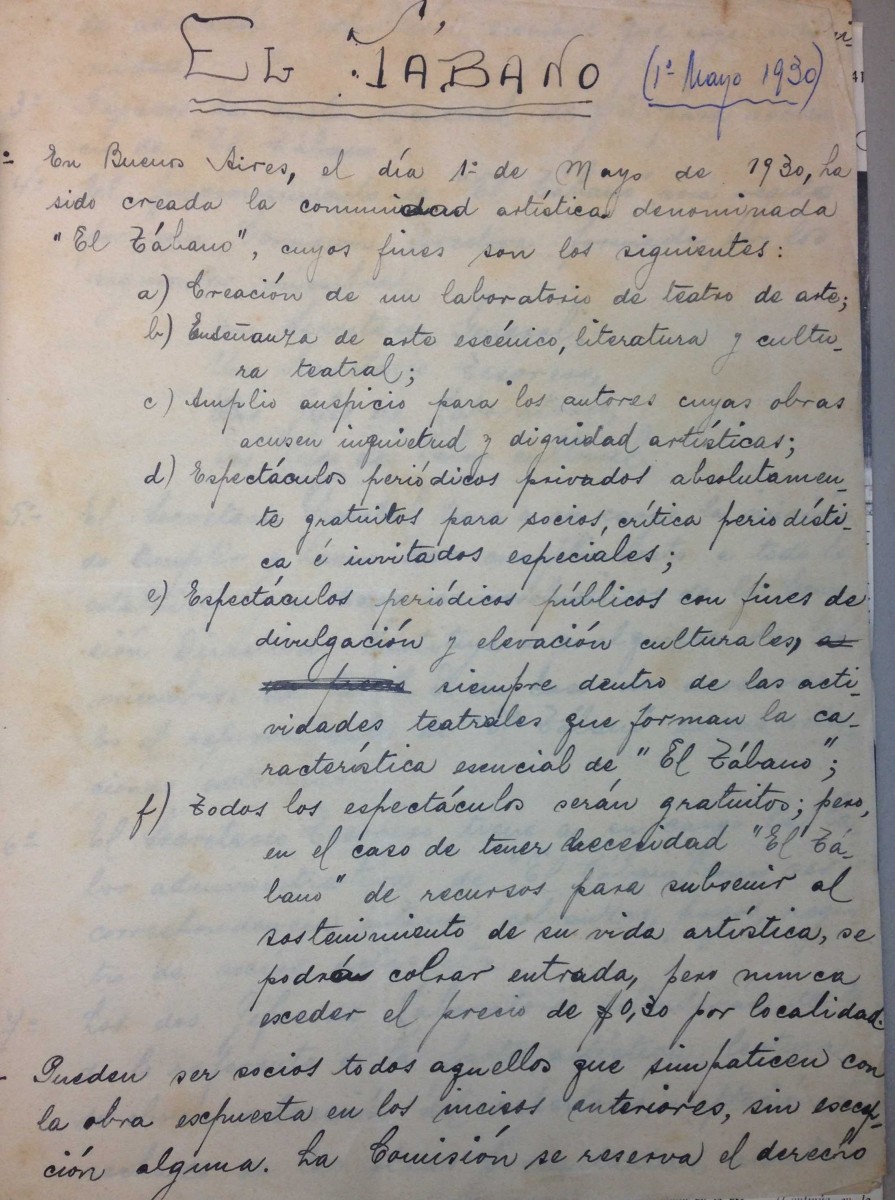 EL TÁBANO (1º Mayo 1930)
En Buenos Aires, el día 1º de Mayo de 1930, ha
sido creada la comunidad artística denominada
"El Tábano", cuyos fines son los siguientes:
a) Creación de un laboratorio de teatro de arte;
b) Enseñanza de arte escénico, literatura y cultu-
ra teatral;
c) Amplio auspicio para los autores cuyas obras
acusen inquietud y dignidad artísticas;
d) Espectáculos periódicos privados absolutamen-
te gratuitos para socios, crítica periodísti-
ca é invitados especiales;
e) Espectáculos periódicos públicos con fines de
divulgación y elevación culturales,
siempre dentro de las acti-
vidades teatrales que forman la ca-
racterística esencial de "El Tábano";
f) Todos los espectáculos serán gratuitos; pero,
en el caso de tener necesidad "El Tá-
bano" de recursos para subvenir al
sostenimiento de su vida artística, se
podrá cobrar entrada, pero nunca
exceder el precio de $0,30 por localidad.
Pueden ser socios todos aquellos que simpaticen con
la obra expuesta en los incisos anteriores, sin excep-
ción alguna. La Comisión se reserva el derecho